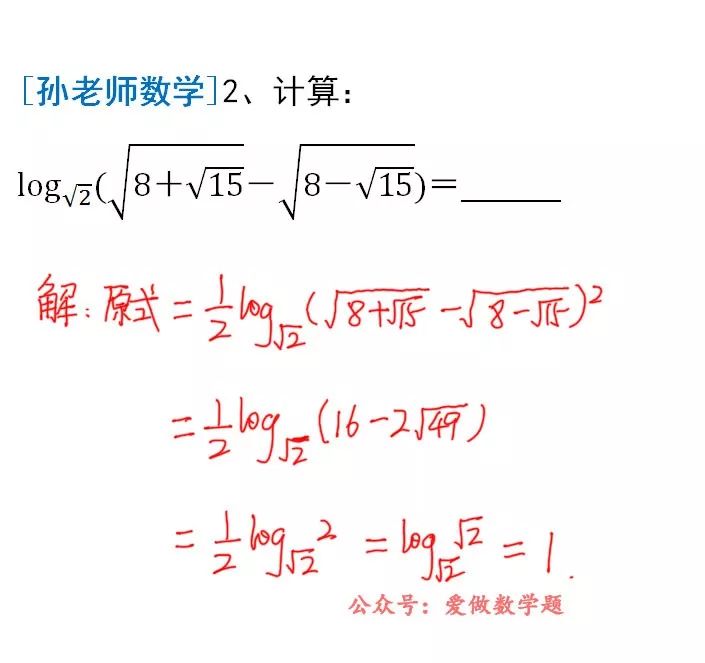 [孙老师数学]2、计算：
log√2(√(8+√15)−√(8−√15))=______
解：原式=1/2log√2(√(8+√15)-√(8-√15))²
=1/2log√2(16-2√49)
=1/2log√2 2=log√2√2=1.
公众号：爱做数学题